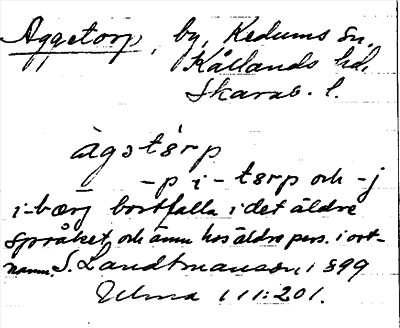 Aggetorp, by, Kedums sn,
Kållands hd,
Skarab. l.
àgətɜ́rp
-p i -tɜrp och -j
i -bærj bortfalla i det äldre
språket och ännu hos äldre pers. i ort-
namn. S. Landtmanson 1899
Ulma 111:201.